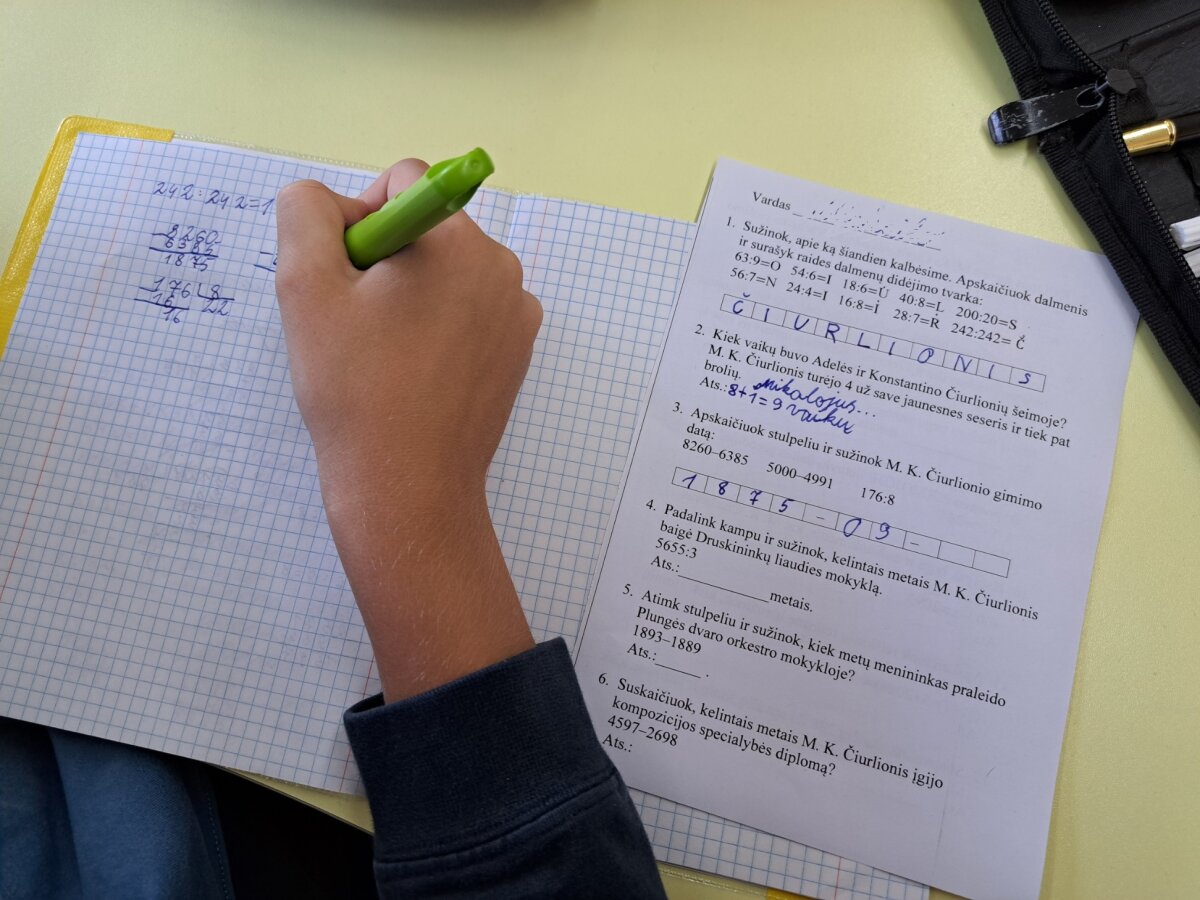 242:242=1
8260
6385
1875
176 8
16 22
16
Vardas
1. Sužinok, apie ką šiandien kalbėsime. Apskaičiuok dalmenis
ir surašyk raides dalmenų didėjimo tvarka:
63:9=O 54:6=I 18:6=Ú 40:8=L 200:20=S
56:7=N 24:4=I 16:8=İ 28:7=Ṙ 242:242= Č
Č I U R L I O N I S
2. Kiek vaikų buvo Adelės ir Konstantino Čiurlionių šeimoje?
M. K. Čiurlionis turėjo 4 už save jaunesnes seseris ir tiek pat
brolių. Mikalojus...
Ats.: 8+1=9 vaikų
3. Apskaičiuok stulpeliu ir sužinok M. K. Čiurlionio gimimo
datą:
8260–6385 5000–4991 176:8
1 8 7 5 – 0 9 –
4. Padalink kampu ir sužinok, kelintais metais M. K. Čiurlionis
baigė Druskininkų liaudies mokyklą.
5655:3
Ats.:__________metais.
5. Atink stulpeliu ir sužinok, kiek metų menininkas praleido
Plungės dvaro orkestro mokykloje?
1893–1889
Ats.:_____ .
6. Suskaičiuok, kelintais metais M. K. Čiurlionis įgijo
kompozicijos specialybės diplomą?
4597–2698
Ats.: